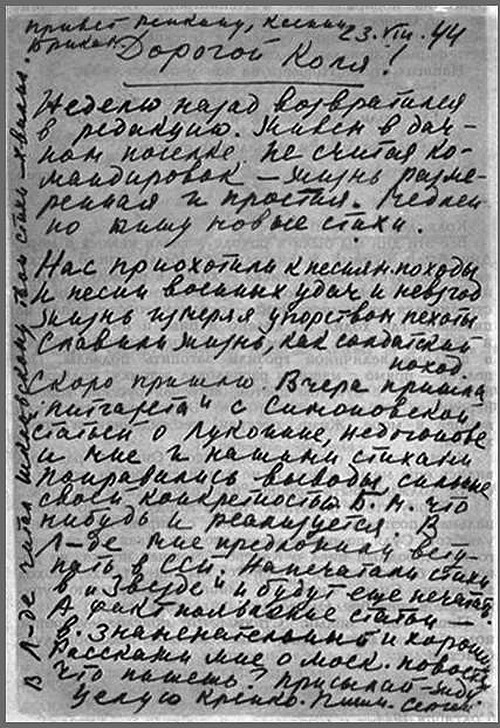 привет Пенкину, Ксении
23.VIII.44
Дорогой Коля!
Неделю назад возвратился
в редакцию. Живем в дач-
ном поселке. Не считая ко-
мандировок – жизнь разме-
ренная и простая. Медлен-
но пишу новые стихи.
Нас приохотили к песням походы
И песни военных удач и невзгод
Жизнь измеряя упорством пехоты
Славили жизнь, как солдатский
поход.
Скоро пришлю. Вчера пришла
"литгазета" с Симоновской
статьей о Луконине, Недогонове
и мне и нашими стихами
Понравились выводы, сильные
своей конкретностью Б. М. что
нибудь и реализуется. В
Л-де мне предложили всту-
пать в ССП. Напечатали стихи
в "Звезде" и будут еще печатать.
А факт появление статьи –
в. знаменательный и хороший
Расскажи мне о моск. новостях
Что пишешь? присылай – жду
Целую крепко. Пиши. Сергей.
В Л-де читал Шкловскому твои стихи – хвалил.